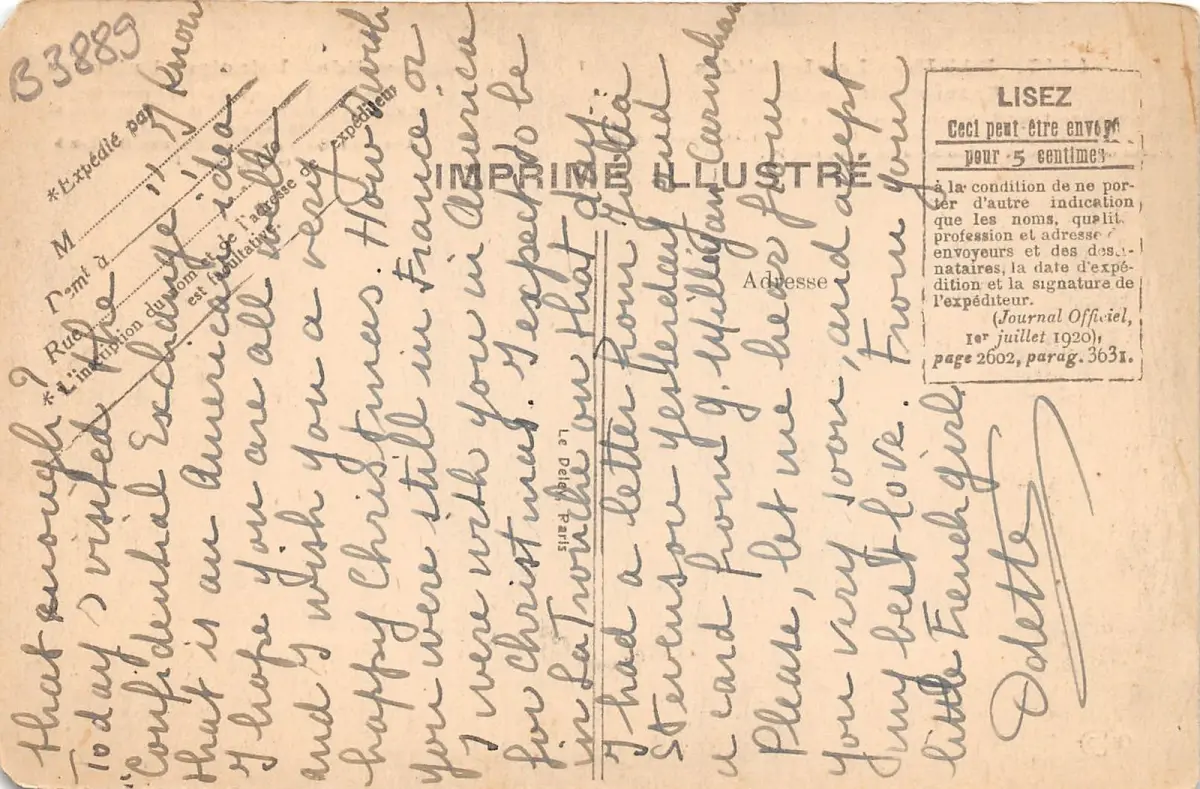 B3889
*Expédié par
M
Demt à
Rue No
*L'inscription du nom et de l'adresse de expéditeur
est facultative.
IMPRIMÉ ILLUSTRÉ
Adresse
Le Deley, Paris
LISEZ
Ceci peut être envoyé
pour 5 centimes
à la condition de ne por-
ter d'autre indication
que les noms, qualit.
profession et adresse
envoyeurs et des desti-
nataires, la date d'expé-
dition et la signature de
l'expéditeur.
(Journal Officiel,
1er juillet 1920),
page 2602, parag. 3631.
that enough?
Today, I visited the
"Confidential Exchange"
that is an American idea.
I hope you are all well
and I wish you a very
happy Christmas. How I wish
you were still in France or
I were with you in America
for Christmas. I expect to be
in La Tronche on that day.
I had a letter from Julia
Stevenson yesterday and
a card from G. Milligan Carnahan
Please, let me hear from
you very soon, and accept
my best love. From your
little French girl
Odette